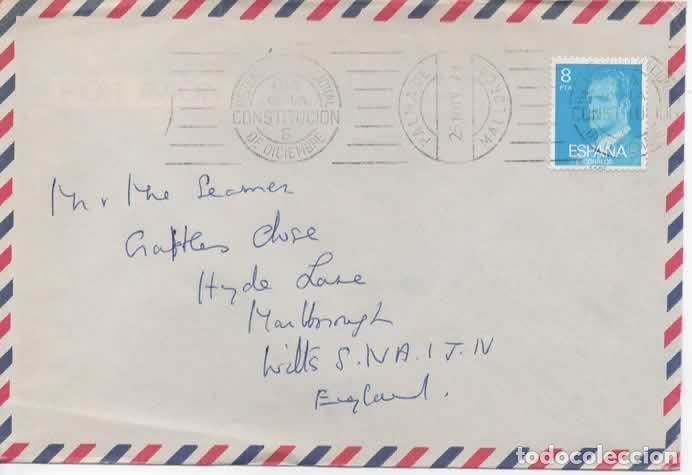 CONSTITUCION
6
DE DICIEMBRE
PALMA DE MALLORCA
8
PTA
ESPAÑA
CORREOS
Mr & Mrs Seamer
Close
Hyde Lane
Marlborough
Wilts S.N.A.1 J.N
England.
todocoleccion